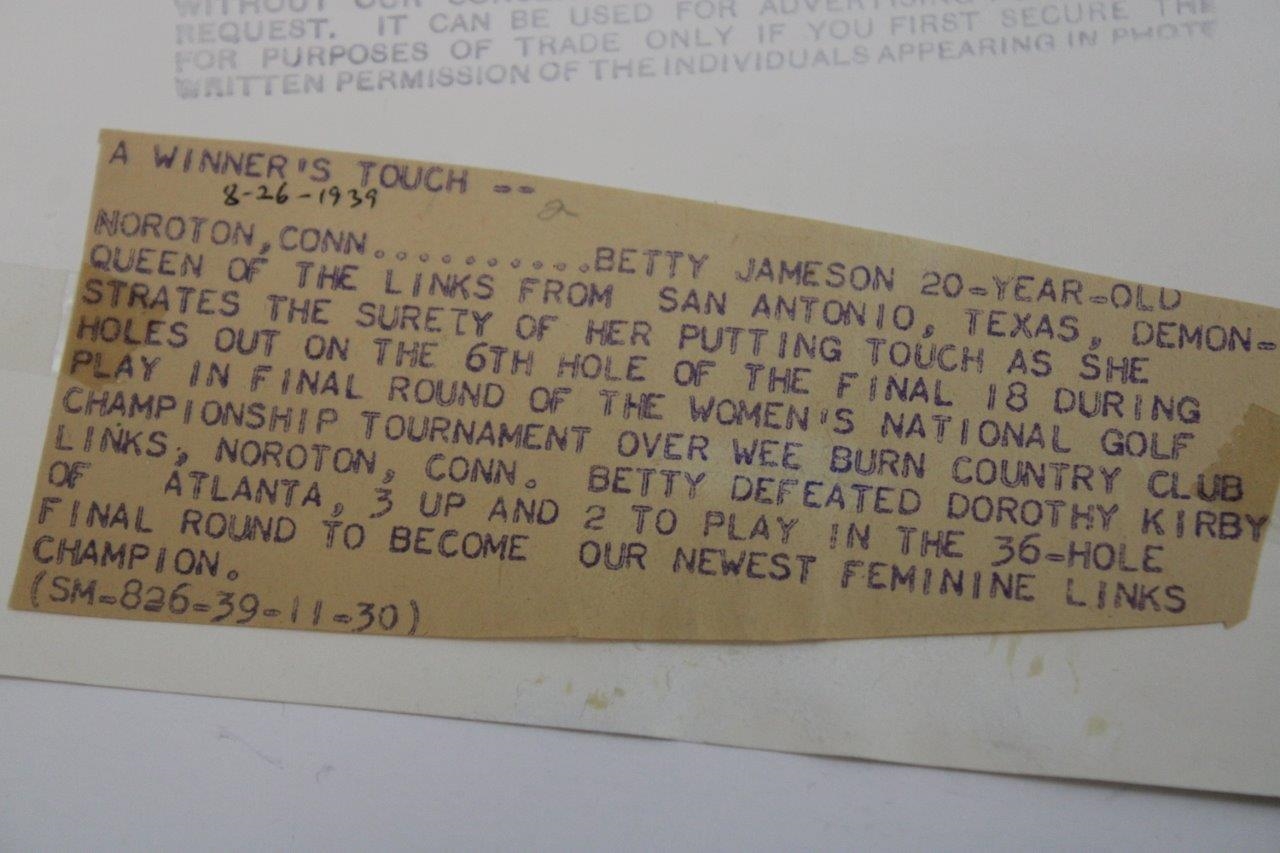 WITHOUT OUR
REQUEST. IT CAN BE USED FOR ADVERTISING
FOR PURPOSES OF TRADE ONLY IF YOU FIRST SECURE THE
WRITTEN PERMISSION OF THE INDIVIDUALS APPEARING IN PHOTO
A WINNER'S TOUCH --
8-26-1939
2
NOROTON, CONN..........BETTY JAMESON 20-YEAR-OLD
QUEEN OF THE LINKS FROM SAN ANTONIO, TEXAS, DEMON-
STRATES THE SURETY OF HER PUTTING TOUCH AS SHE
HOLES OUT ON THE 6TH HOLE OF THE FINAL 18 DURING
PLAY IN FINAL ROUND OF THE WOMEN'S NATIONAL GOLF
CHAMPIONSHIP TOURNAMENT OVER WEE BURN COUNTRY CLUB
LINKS, NOROTON, CONN. BETTY DEFEATED DOROTHY KIRBY
OF ATLANTA, 3 UP AND 2 TO PLAY IN THE 36-HOLE
FINAL ROUND TO BECOME OUR NEWEST FEMININE LINKS
CHAMPION.
(SM-826-39-11-30)